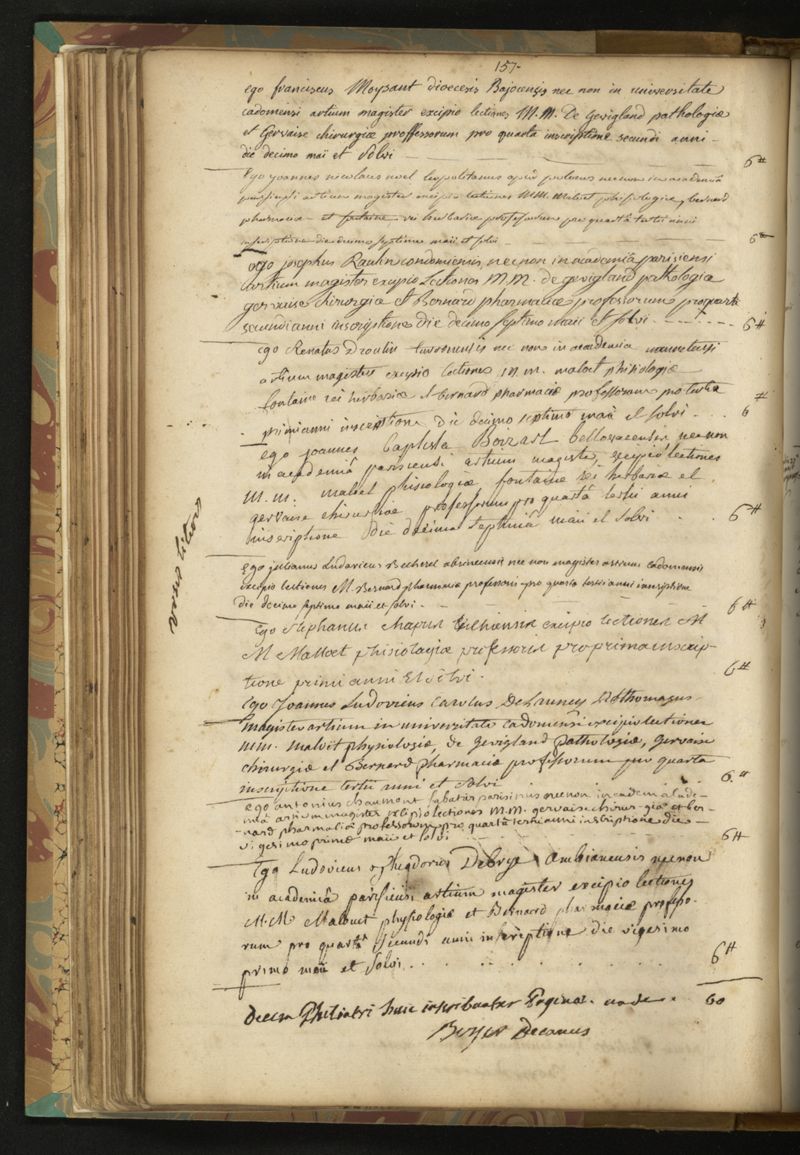 157.
ego franciscus Moysant dioecesis Bajocensis nec non in universitate
cadomensi artium magister excipio lectiones M.M. De Gevigland pathologiæ
et Gervaise chirurgiæ proffessorum pro quarta inscriptione secundi anni
die decimo maii et Solvi 6 ₶
Ego joannes nicolaus noel necnon in academiâ
parisiensi artium magister excipio lectiones M.M. malvet phisiologiæ, bernard
pharmaciæ et fontaine rei herbariæ professorum pro quartâ tertii anni
inscriptione die decimo septimo maii et solvi 6 ₶
ego josephus Raulin condomiensis, nec non in academia parisiensi
artium magister excipio Lectiones M.M. de gevigland pathologiæ
gervaise chirurgiæ et Bernard pharmaciæ professorum pro quarta
secundi anni inscriptione Die decimo septimo maii et solvi 6 ₶
ego Renatus Droulin turonensis nec non in academia
artium magister excipio lectiones M M. maloet phisiologiæ
fontaine rei herbariæ et bernard pharmaciæ professorum pro tertia
primi anni inscriptione Die decimo septimo maii et solvi . . . 6 ₶
ego joannes Baptista Boizart bellovacensis necnon
in academiâ parisiensi artium magister, excipio lectiones
M.m. maloet phisiologiæ, fontaine rei herbariæ et
gervaise chirurgiæ professorum pro quartâ tertii anni
inscriptione die decimo septimo maii et solvi 6 ₶
ego julianus Ludovicus Becherel abrincensis nec non magister artium cadomensis
excipio lectiones M. Bernard pharmaciæ professoris pro quarta tertii anni inscriptione
die decimo septimo maii et solvi . 6 ₶
Ego Stephanus Chapus excipio lectiones M
M Malloet phisiologiæ professoris pro prima inscrip-
tione primi anni Et solvi . 6 ₶
Ego Joannes Ludovicus Carolus Delauney Rothomagus
magister artium in universitate Cadomensi excipio lectiones
MM. Maloit physiologiæ, de Gevigland Pathologiæ, Gervaise
chirurgiæ et Bernard pharmaciæ professorum pro quarta
inscriptione tertii anni et Solvi 6 ₶
ego antonius chaumont Sabatier parisinus nec non in cademia
artium magister excipio lectiones M.M. gervaise chirur-giæ et ber-
-nard pharmaciæ professorum pro quarta tertii anni inscriptione die
vigesimo primo maii et solvi 6 ₶
Ego Ludovicus Theodorus Debrye Ambianensis necnon
in academiâ parisiensi artium magister excipio lectiones
M.M. Malouet physiologiæ et Bernard pharmaciæ professo-
rum pro quartâ secundi anni inscriptione die vigesimo
primo maii et Solvi . . 6 ₶
Decem Philiatri huic inscribuntur Paginæ. unde . 60
Boyer Decanus